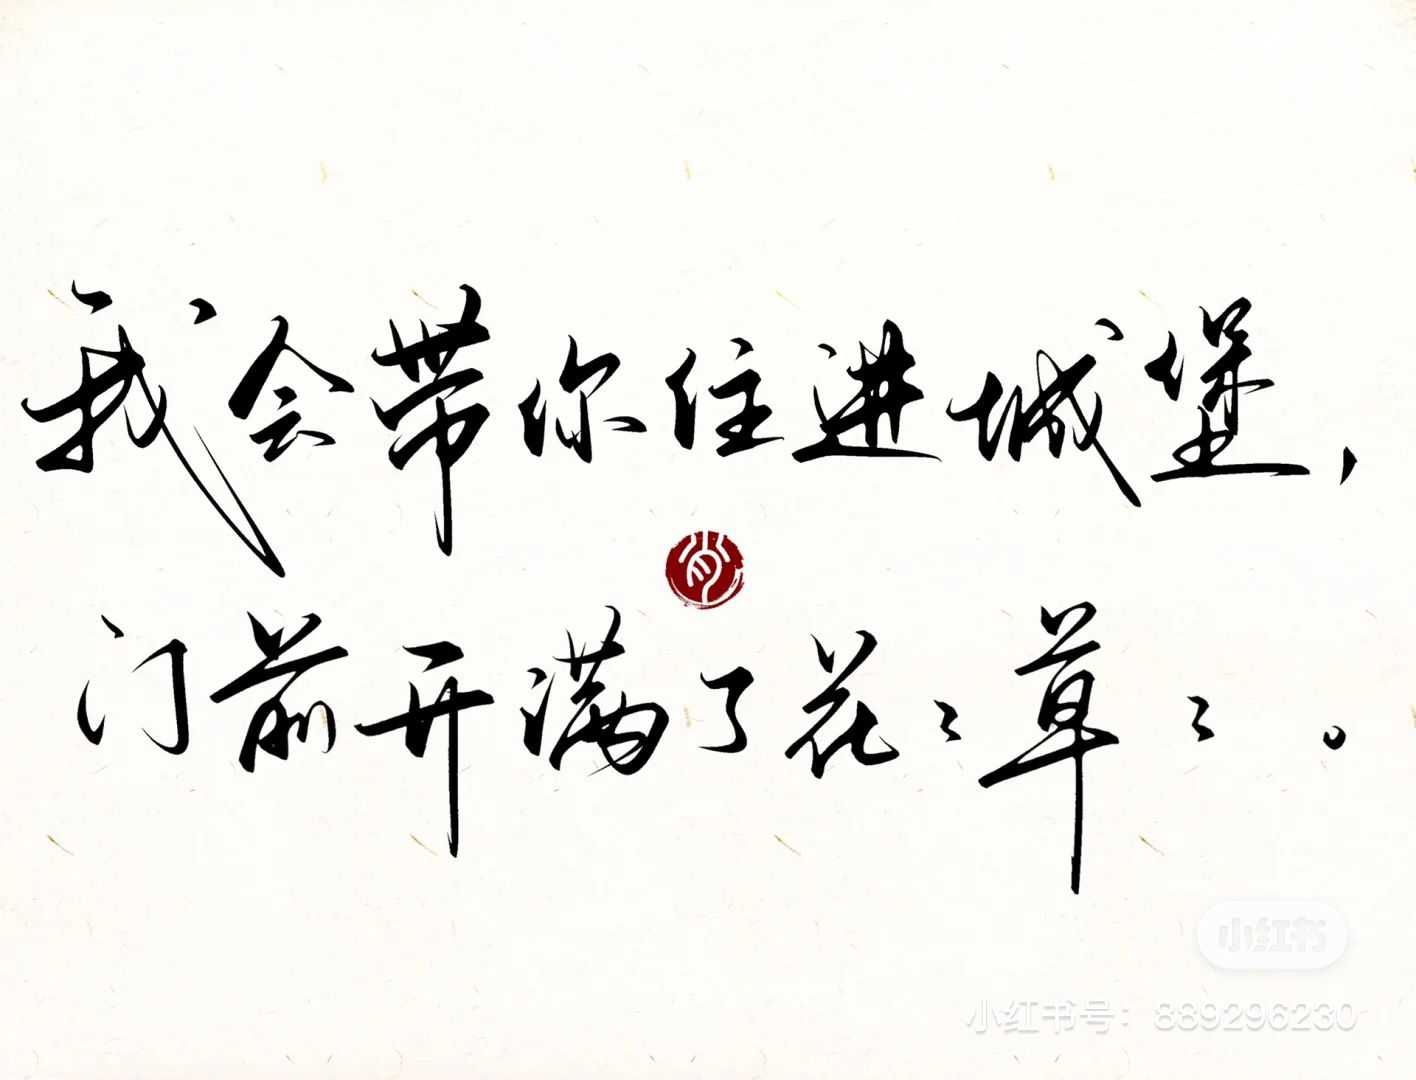 我会带你住进城堡，
门前开满了花〻草〻。
小红书
小红书号：889296230